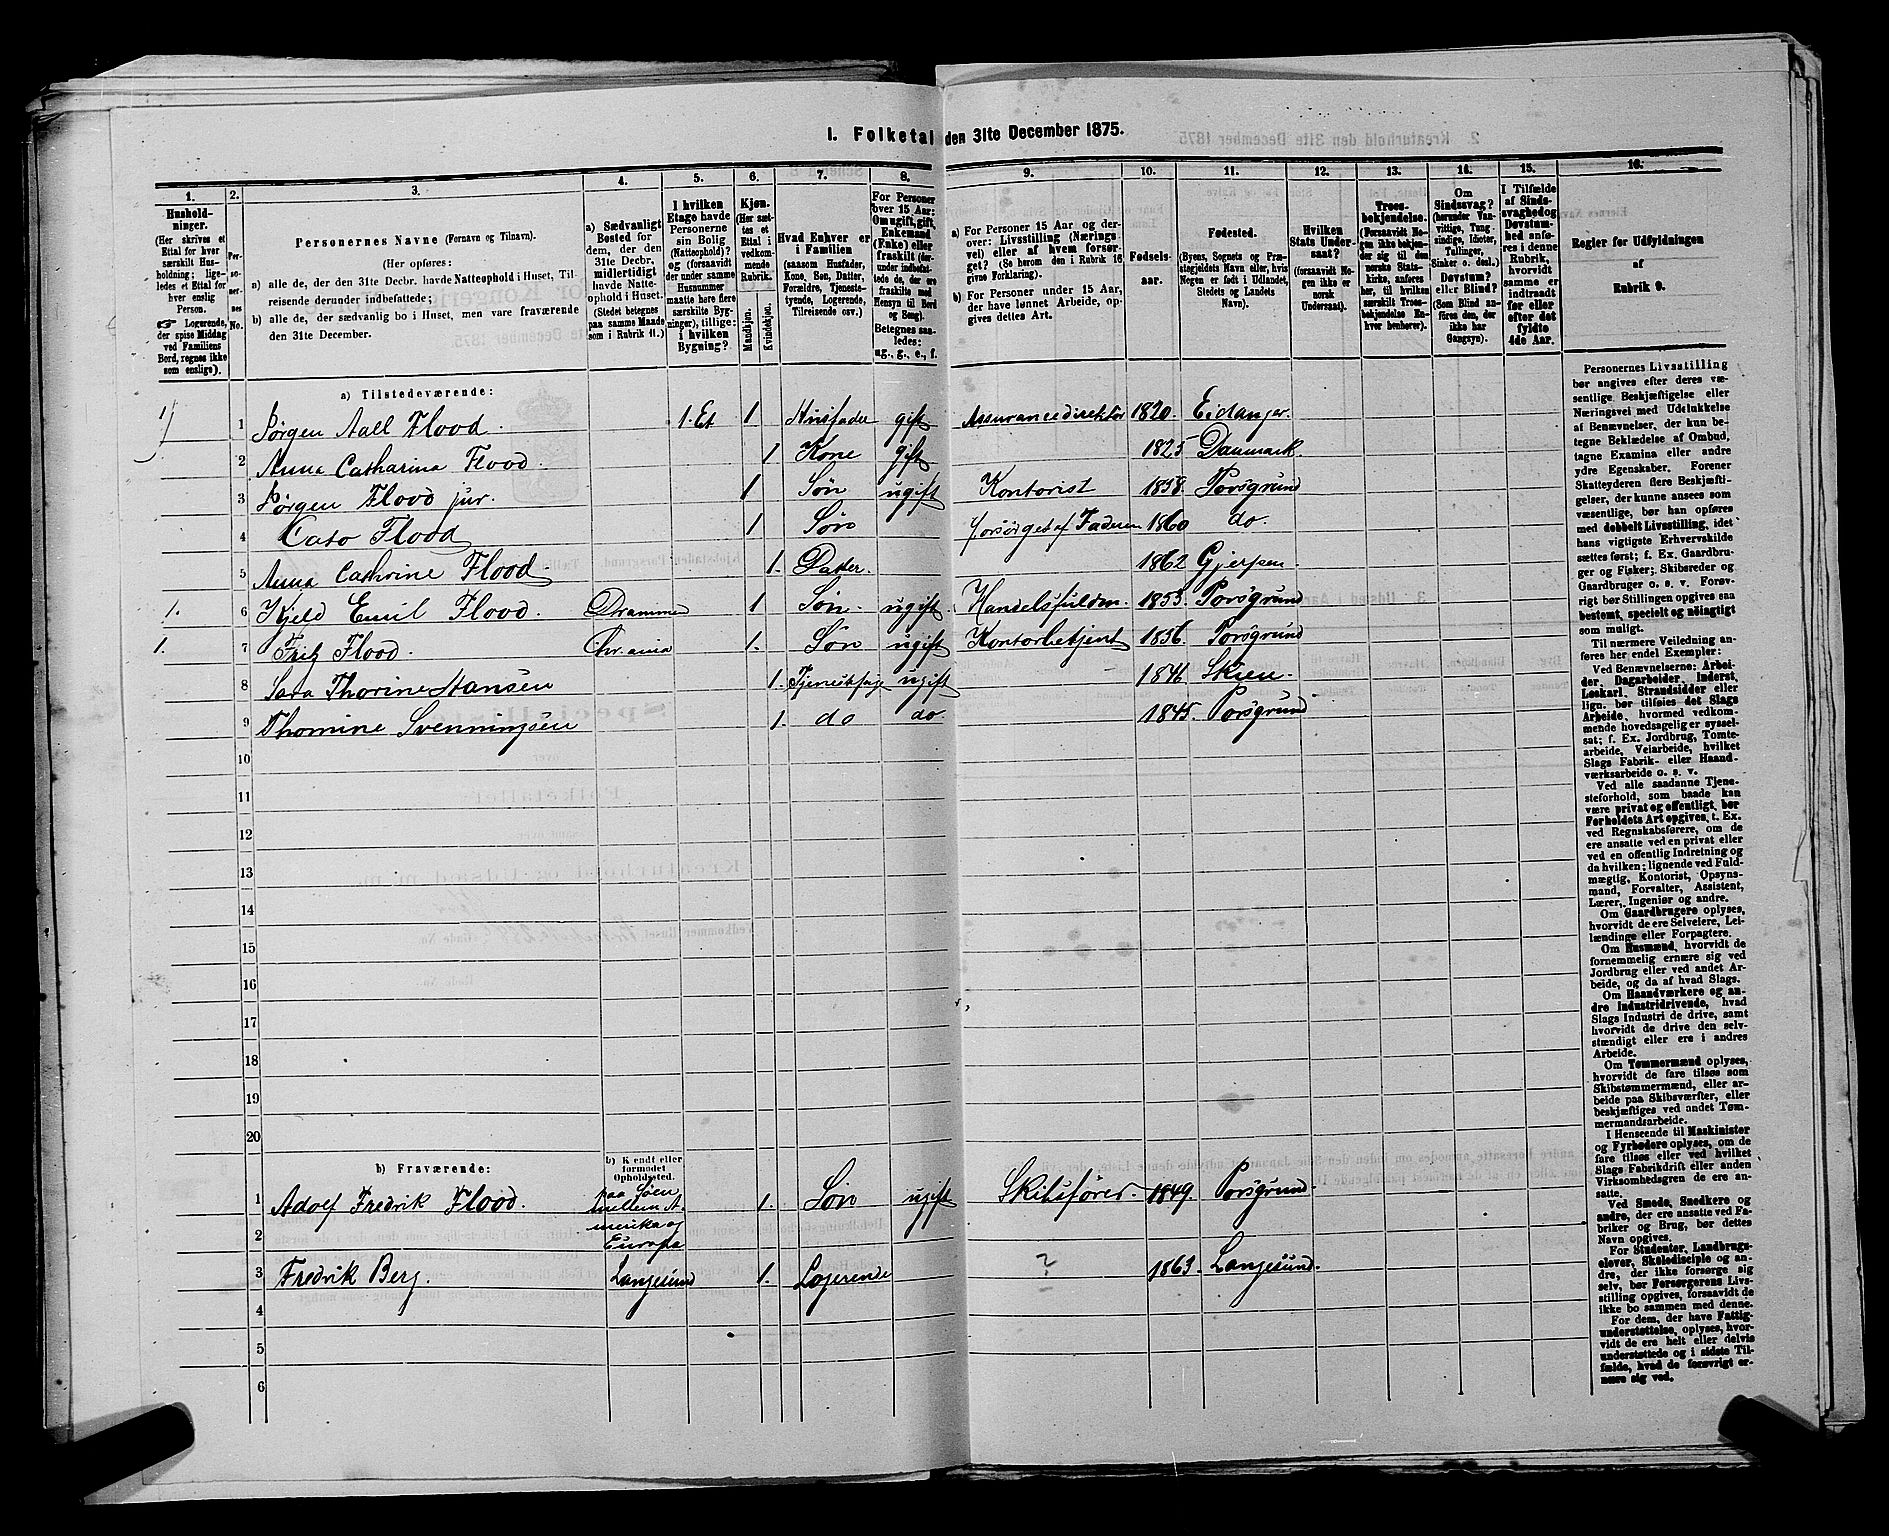 I. Folketal den 31te December 1875.
1. 2. 3. 4. 5. 6. 7. 8. 9. 10. 11. 12. 13. 14. 15. 16.
Hushold-
ninger.
(Her skrives et
Ettal for hver
særskilt Hus-
holdning; lige-
ledes et Ettal for
hver enslig
Person.
☞ Logerende,
der spise Middag
ved Familiens
Bord, regnes ikke
som enslige).
Per-
so-
ner-
nes
No.
Personernes Navne (Fornavn og Tilnavn).
(Her opføres:
a) alle de, der den 31te Decbr. havde Natteophold i Huset, Til-
reisende derunder indbefattede;
b) alle de, der sædvanlig bo i Huset, men vare fraværende
den 31te December.
a) Sædvanligt
Bosted for
dem, der den
31te Decbr.
midlertidigt
havde Natte-
ophold i Huset.
(Stedet betegnes
paa samme Maade
som i Rubrik 11.)
I hvilken
Etage havde
Personerne
sin Bolig
(Natteophold)?
og (forsaavidt
der under samme
Husnummer
maatte høre flere
særskilte Byg-
ninger), tillige:
i hvilken
Bygning?
Kjøn.
(Her sæt-
tes et
Ettal i
vedkom-
mende
Rubrik.
Mandkjøn.
Kvindekjøn.
Hvad Enhver er
i Familien
(saasom Husfader,
Kone, Søn, Datter,
Forældre, Tjeneste-
tyende, Logerende,
Tilreisende osv.)
For Personer
over 15 Aar:
Om ugift, gift,
Enkemand
(Enke) eller
fraskilt (der-
under indbefat-
tede de, der ere
fraskilte med
Hensyn til Bord
og Seng).
Betegnes saa-
ledes:
ug., g., e., f.
a) For Personer 15 Aar og der-
over: Livsstilling (Nærings-
vei) eller af hvem forsør-
get? (Se herom den i Rubrik 16
givne Forklaring).
b) For Personer under 15 Aar,
der have lønnet Arbeide, op-
gives dettes Art.
Fødsels-
aar.
Fødested.
(Byens, Sognets og Præ-
stegjeldets Navn eller, hvis
Nogen er født i Udlandet,
Stedets og Landets
Navn).
Hvilken
Stats Under-
saat?
(forsaavidt No-
gen ikke er
norsk
Undersaat).
Troes-
bekjendelse.
(Forsaavidt No-
gen ikke bekjen-
der sig til den
norske Stats-
kirke, anføres
her, til hvilken
særskilt Troes-
bekjendelse En-
hver henhører).
Om
Sindssvag?
(herunder Van-
vittige, Tung-
sindige, Idioter,
Tullinger,
Sinker o. desl.)
Døvstum?
eller Blind?
(Som Blind an-
føres den, der
ikke har
Gangsyn).
I Tilfælde
af Sinds-
svaghed og
Døvstum-
hed anfø-
res i denne
Rubrik,
hvorvidt
samme er
indtraadt
før eller
efter det
fyldte
4de Aar.
Regler for Udfyldningen
af
Rubrik 9.
a) Tilstedeværende:
1 1 Jørgen Aall Flood. 1. Et 1 Husfader gift Assurancedirektør 1820. Eidanger.
2 Anna Catharina Flood. 1 Kone gift 1825 Danmark
3 Jørgen Flood jur. 1 Søn ugift Kontorist 1858. Porsgrund
4 Cato Flood 1 Søn forsørget af Faderen 1860 do.
5 Anna Cathrine Flood 1. Datter. 1862 Gjerpen.
1. 6 Kjeld Emil Flood. Drammen 1 Søn. ugift Handelsfuldm. 1855. Porsgrund
1. 7 Fritz Flood. Chr.ania 1. Søn ugift Kontorbetjent 1856. Porsgrund
8 Sara Thorine Hansen 1. ugift 1846 Skien.
9 Thomine Svenningsen 1. do do. 1845. Porsgrund
10
11
12
13
14
15
16
17
18
19
20
b) Fraværende:
b) Kjendt eller
formodet
Opholdssted.
1 Adolf Fredrik Flood. paa Søen 1. Søn ugift Skibsfører. 1849. Porsgrund.
mellem A-
2 merika og
Europa
3 Fredrik Berg. Langesund 1. Logerende ? 1863. Langesund.
4
5
6
Personernes Livsstilling
bør angives efter deres væ-
sentlige Beskjæftigelse eller
Næringsvei med Udelukkelse
af Benævnelser, der kun be-
tegne Beklædelse af Ombud,
tagne Examina eller andre
ydre Egenskaber. Forener
Skatteyderen flere Beskjæfti-
gelser, der kunne ansees som
væsentlige, bør han opføres
med dobbelt Livsstilling, idet
hans vigtigste Erhvervskilde
sættes først; f. Ex. Gaardbru-
ger og Fisker; Skibsreder og
Gaardbruger o. s. v. Forøv-
rigt bør Stillingen opgives saa
bestemt, specielt og nøiagtigt
som muligt.
Til nærmere Veiledning an-
føres her endel Exempler:
Ved Benævnelserne: Arbei-
der, Dagarbeider, Inderst,
Løskarl, Strandsidder eller
lign. bør tilføies det Slags
Arbeide, hvormed vedkom-
mende hovedsagelig er syssel-
sat; f. Ex. Jordbrug, Tomte-
arbeide, Veiarbeide, hvilket
Slags Fabrik- eller Haand-
værksarbeide o. s. v.
Ved alle saadanne Tjene-
steforhold, som baade kan
være privat og offentligt, bør
Forholdets Art opgives, t. Ex.
ved Regnskabsførere, om de
ere ansatte ved en privat eller
ved en offentlig Indretning og
da hvilken; lignende ved Fuld-
mægtig, Kontorist, Opsyns-
mand, Forvalter, Assistent,
Lærer, Ingeniør og andre.
Om Gaardbrugere oplyses,
hvorvidt de ere Selveiere, Lei-
lændinge eller Forpagtere.
Om Husmænd, hvorvidt de
fornemmelig ernære sig ved
Jordbrug eller ved andet Ar-
beide, og da af hvad Slags.
Om Haandværkere og an-
dre Industridrivende, hvad
Slags Industri de drive, samt
hvorvidt de drive den selv-
stændigt eller ere i andres
Arbeide.
Om Tømmermænd oplyses,
hvorvidt de fare tilsøs som
Skibstømmermænd, eller ar-
beide paa Skibsværfter, eller
beskjæftiges ved andet Tøm-
mermandsarbeide.
I Henseende til Maskinister
og Fyrbødere oplyses, om de
fare tilsøs eller ved hvilket
Slags Fabrikdrift eller anden
Virksomhedsgren de ere an-
satte.
Ved Smede, Snedkere og
andre, der ere ansatte ved Fa-
briker og Brug, bør dettes
Navn opgives.
For Studenter, Landbrugs-
elever, Skoledisciple og an-
dre, der ikke forsørge sig
selv, bør Forsørgerens Livs-
stilling opgives, forsaavidt de
ikke bo sammen med denne.
For dem, der have Fattig-
understøttelse, oplyses, hvor-
vidt de ere helt eller delvis
understøttede og i sidste Til-
fælde, hvad de forøvrigt er-
nære sig ved.